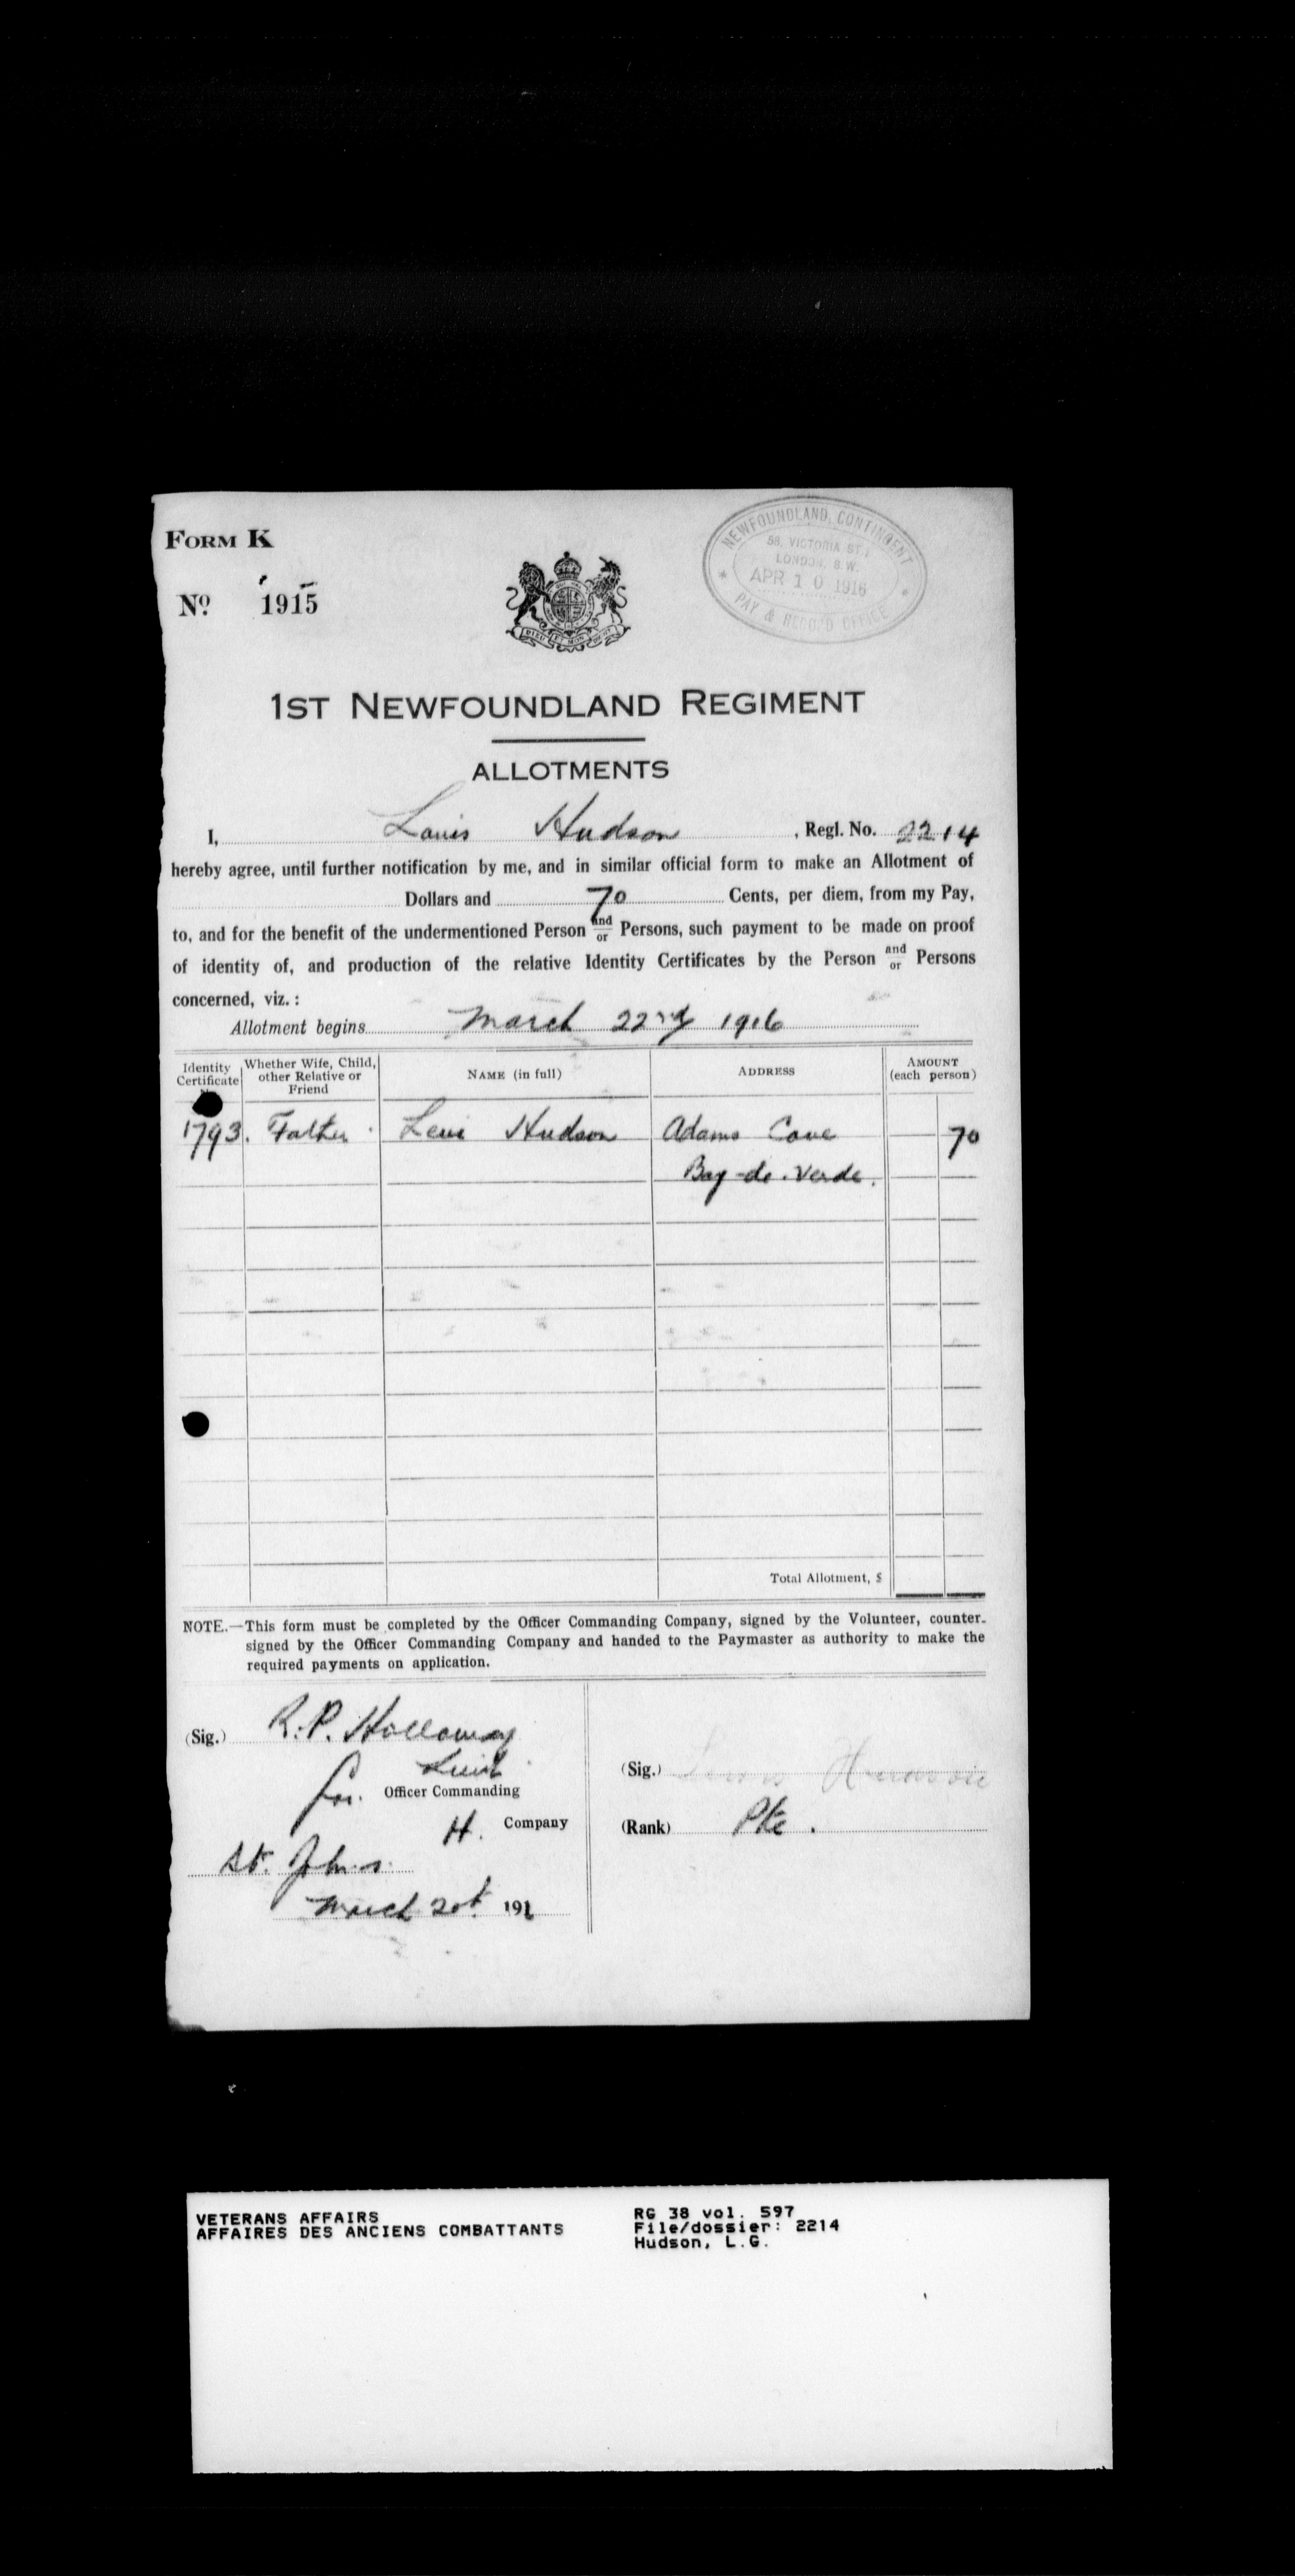 FORM K
No 1915
NEWFOUNDLAND CONTINGENT
58, VICTORIA ST.,
LONDON, S.W.
APR 10 1916
PAY & RECORD OFFICE
1ST NEWFOUNDLAND REGIMENT
ALLOTMENTS
I, Louis Hudson, Regl. No. 2214
hereby agree, until further notification by me, and in similar official form to make an Allotment of
Dollars and 70 Cents, per diem, from my Pay,
to, and for the benefit of the undermentioned Person and or Persons, such payment to be made on proof
of identity of, and production of the relative Identity Certificates by the Person and or Persons
concerned, viz.:
Allotment begins March 22nd 1916
Identity Certificate Whether Wife, Child, other Relative or Friend NAME (in full) ADDRESS AMOUNT (each person)
1793. Father Levi Hudson Adams Cove 70
Bay-de-Verde.
Total Allotment, $
NOTE.—This form must be completed by the Officer Commanding Company, signed by the Volunteer, counter-
signed by the Officer Commanding Company and handed to the Paymaster as authority to make the
required payments on application.
(Sig.) R.P. Holloway
Lieut
for. Officer Commanding
H. Company
St. Johns
March 191
(Sig.)
(Rank) Pte.
VETERANS AFFAIRS
AFFAIRES DES ANCIENS COMBATTANTS
RG 38 vol. 597
File/dossier: 2214
Hudson, L.G.